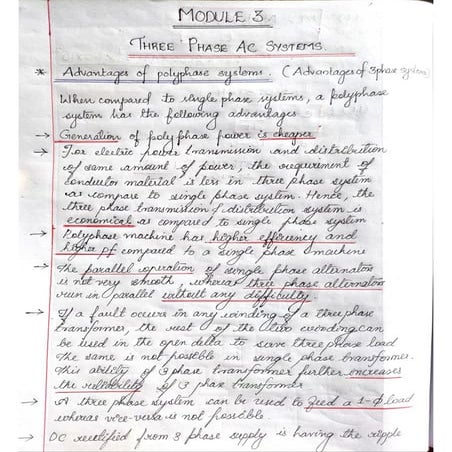 MODULE 3
THREE PHASE AC SYSTEMS.
* Advantages of polyphase systems. (Advantages of 3phase system)
When compared to single phase systems, a polyphase
system has the following advantages
→ Generation of polyphase power is cheaper
→ For electric power transmission and distribution
of same amount of power, the requirement of
conductor material is less in three phase system
as compare to single phase system. Hence, the
three phase transmission & distribution system is
economical as compared to single phase system
→ Polyphase machine has higher efficiency and
higher pf compared to a single phase machine
→ The parallel operation of single phase alternators
is not very smooth, whereas three phase alternators
run in parallel without any difficulty
→ If a fault occurs in any winding of a three phase
transformer, the rest of the two winding can
be used in the open delta to serve three phase load
The same is not possible in single phase transformer.
This ability of 3 phase transformer further increases
the reliability of 3 phase transformer
→ A three phase system can be used to feed a 1-ϕ load
whereas vice-versa is not possible.
→ DC rectified from 3 phase supply is having the ripple